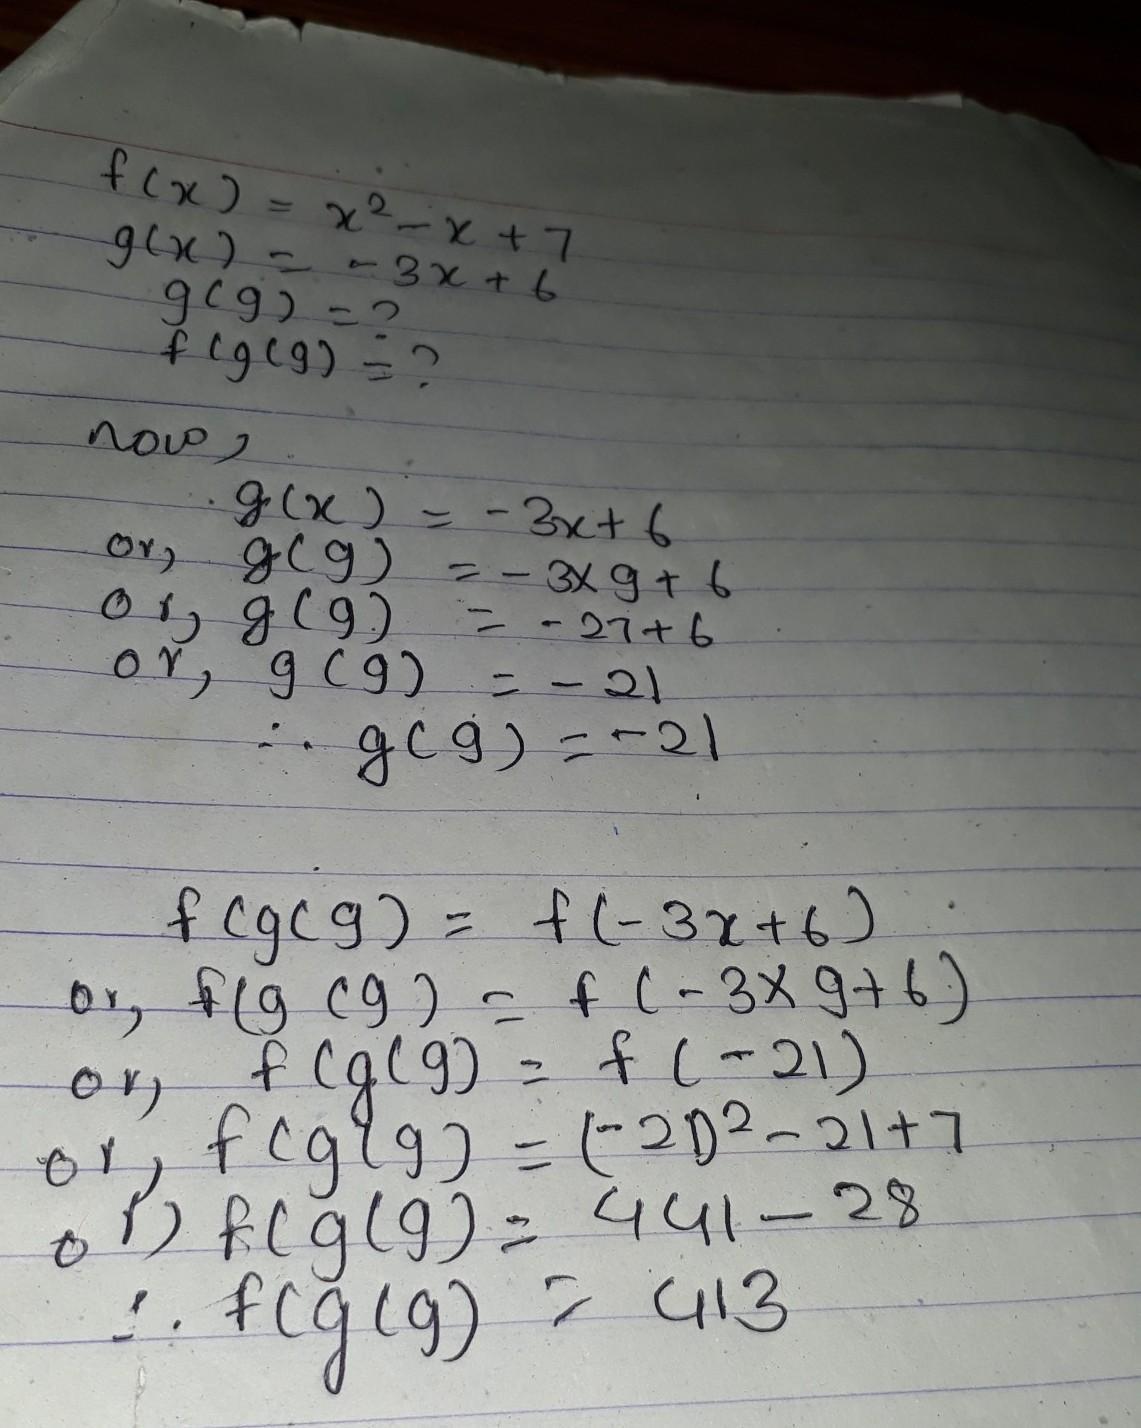 f(x) = x² - x + 7
g(x) = -3x + 6
g(9) = ?
f(g(9) = ?
now,
g(x) = -3x + 6
or, g(9) = -3×9 + 6
or, g(9) = -27 + 6
or, g(9) = -21
∴ g(9) = -21
f(g(9) = f(-3x + 6)
or, f(g(9) = f(-3×9 + 6)
or, f(g(9) = f(-21)
or, f(g(9) = (-21)² - 21 + 7
or, f(g(9) = 441 - 28
∴ f(g(9) = 413